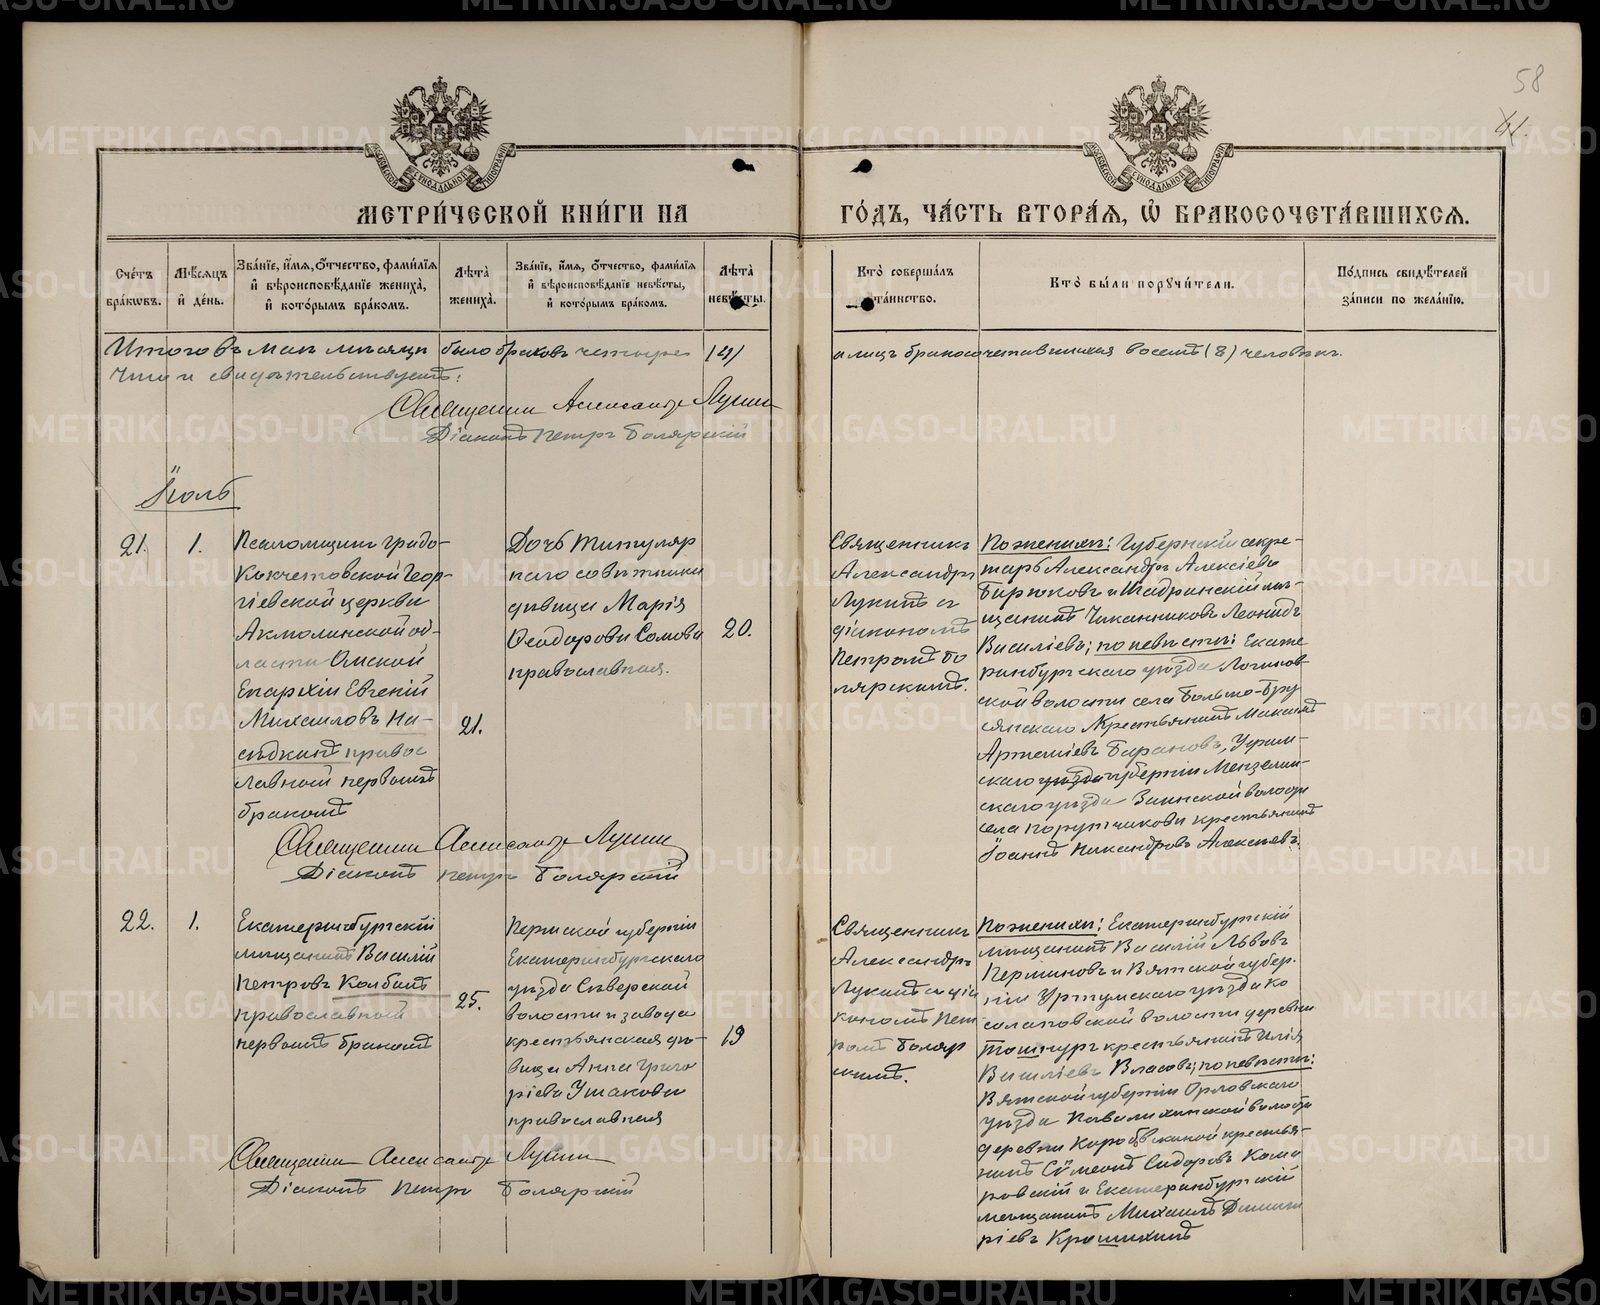 58
41.
МЕТРИ́ЧЕСКОЙ КНИ́ГИ НА ГО́ДЪ, ЧА́СТЬ ВТОРА́Ѧ, Ѽ БРАКОСОЧЕТА́ВШИХСѦ.
Сче́тъ бра́кѡвъ.
Мѣ́сѧцъ и҆ де́нь.
Зва́нїе, и҆́мѧ, ѻ҆́тчество, фами́лїѧ и҆ вѣроисповѣ́данїе жениха̀, и҆ кото́рымъ бра́комъ.
Лѣта̀ жениха̀.
Зва́нїе, и҆́мѧ, ѻ҆́тчество, фами́лїѧ и҆ вѣроисповѣ́данїе невѣ́сты, и҆ кото́рымъ бра́комъ.
Лѣта̀ невѣ́сты.
Кто̀ соверша́лъ та́инство.
Кто̀ бы́ли порꙋчи́тели.
По́дпись свидѣ́телей за́писи по жела́нїю.
Итого въ мае мѣсяцѣ было браковъ четыре (4) а лицъ бракосочетавшихся восемь (8) человѣкъ.
Чѣмъ и свидѣтельствуемъ:
Священник Александр Лукин
Діаконъ Петръ Боляркій
Іюль
21.
1.
Псаломщикъ градо-
Кокчетовской Геор-
гіевской церкви
Акмолинской об-
ласти Омской
Епархіи Евгеній
Михаиловъ На-
сѣдкинъ правос
лавной первымъ
бракомъ
21.
Дочь титуляр
наго совѣтника
дѣвица Марія
Ѳеодорова Сомова
православная.
20.
Священникъ
Александръ
Лукинъ съ
діакономъ
Петромъ Бо
лярскимъ.
По женихѣ: Губернскій секре-
тарь Александръ Алексѣевъ
Бирюковъ и Шадринскій мѣ-
щанинъ Чиканниковъ Леонидъ
Василіевъ; по невѣстѣ: Екате
ринбургскаго уѣзда Логинов-
ской волости села Больше-Бру
сянскаго Крестьянинъ Максимъ
Артеміевъ Барановъ, Уфим-
скаго уѣзда губерніи Мензелин-
скаго уѣзда Заинской волости
села Поручикова крестьянинъ
Іоаннъ Никандровъ Алексѣевъ.
Священник Александр Лукин
Діаконъ Петръ Болярскій
22.
1.
Екатеринбургскій
мѣщанинъ Василій
Петровъ Колбинъ
православной
первымъ бракомъ
25.
Пермской губерніи
Екатеринбургскаго
уѣзда Сѣверской
волости и завода
крестьянская дѣ-
вица Анна Григо
ріева Ушакова
православная
19
Священникъ
Александръ
Лукинъ съ діа
кономъ Пет
ромъ Боляр
скимъ.
По женихѣ: Екатеринбургскій
мѣщанинъ Василій Львовъ
Перминовъ и Вятской губер-
ніи Уржумскаго уѣзда Ко
солаповской волости деревни
Тошнуръ крестьянинъ Илія
Василіевъ Власовъ; по невѣстѣ:
Вятской губерніи Орловскаго
уѣзда Поваликинской волости
деревни Коробовской крестья-
нинъ Сѵмеонъ Сидоровъ Кома
ровскій и Екатеринбургскій
мѣщанинъ Михаилъ Димит
ріевъ Крашихинъ
Священник Александр Лукин
Діаконъ Петръ Болярскій
METRIKI.GASO-URAL.RU